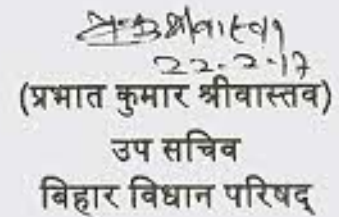 22-2-17
(प्रभात कुमार श्रीवास्तव)
उप सचिव
बिहार विधान परिषद्